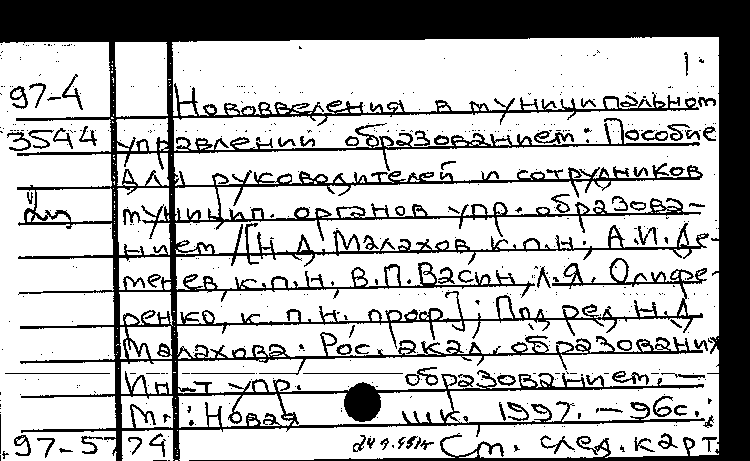 1.
97-4 Нововведения в муниципальном
3544 управлении образованием: Пособие
для руководителей и сотрудников
муницип. органов упр. образова-
нием /[Н.Д. Малахов, к.п.н; А.И. Де-
менев, к.п.н, В.П. Васин, Л.Я. Олифе-
ренко, к.п.н, проф]; Под ред. Н.Д
Малахова; Рос. акад. образования
Ин-т упр. образованием. —
М.: Новая шк., 1997. — 96с.;
97-5774 См. след. карт.